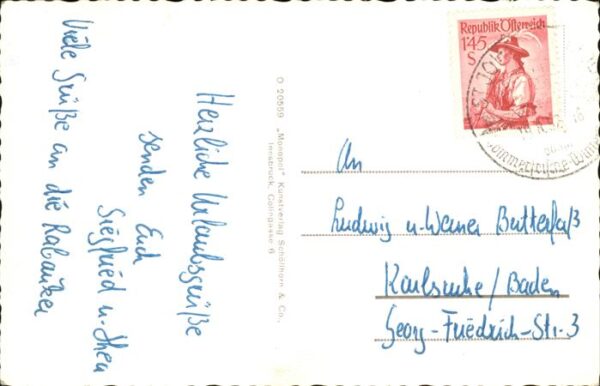 Viele Grüße an die Rabauken
Herzliche Urlaubsgrüße
senden Euch
Siegfried u. Thea
O 20559 „Monopol" Kunstverlag Schöllhorn & Co.,
Innsbruck, Colingasse 6
Republik Österreich
1'45
S
ST. JOH
An
Ludwig u. Werner Butterfaß
Karlsruhe/Baden
Georg-Friedrich-Str. 3